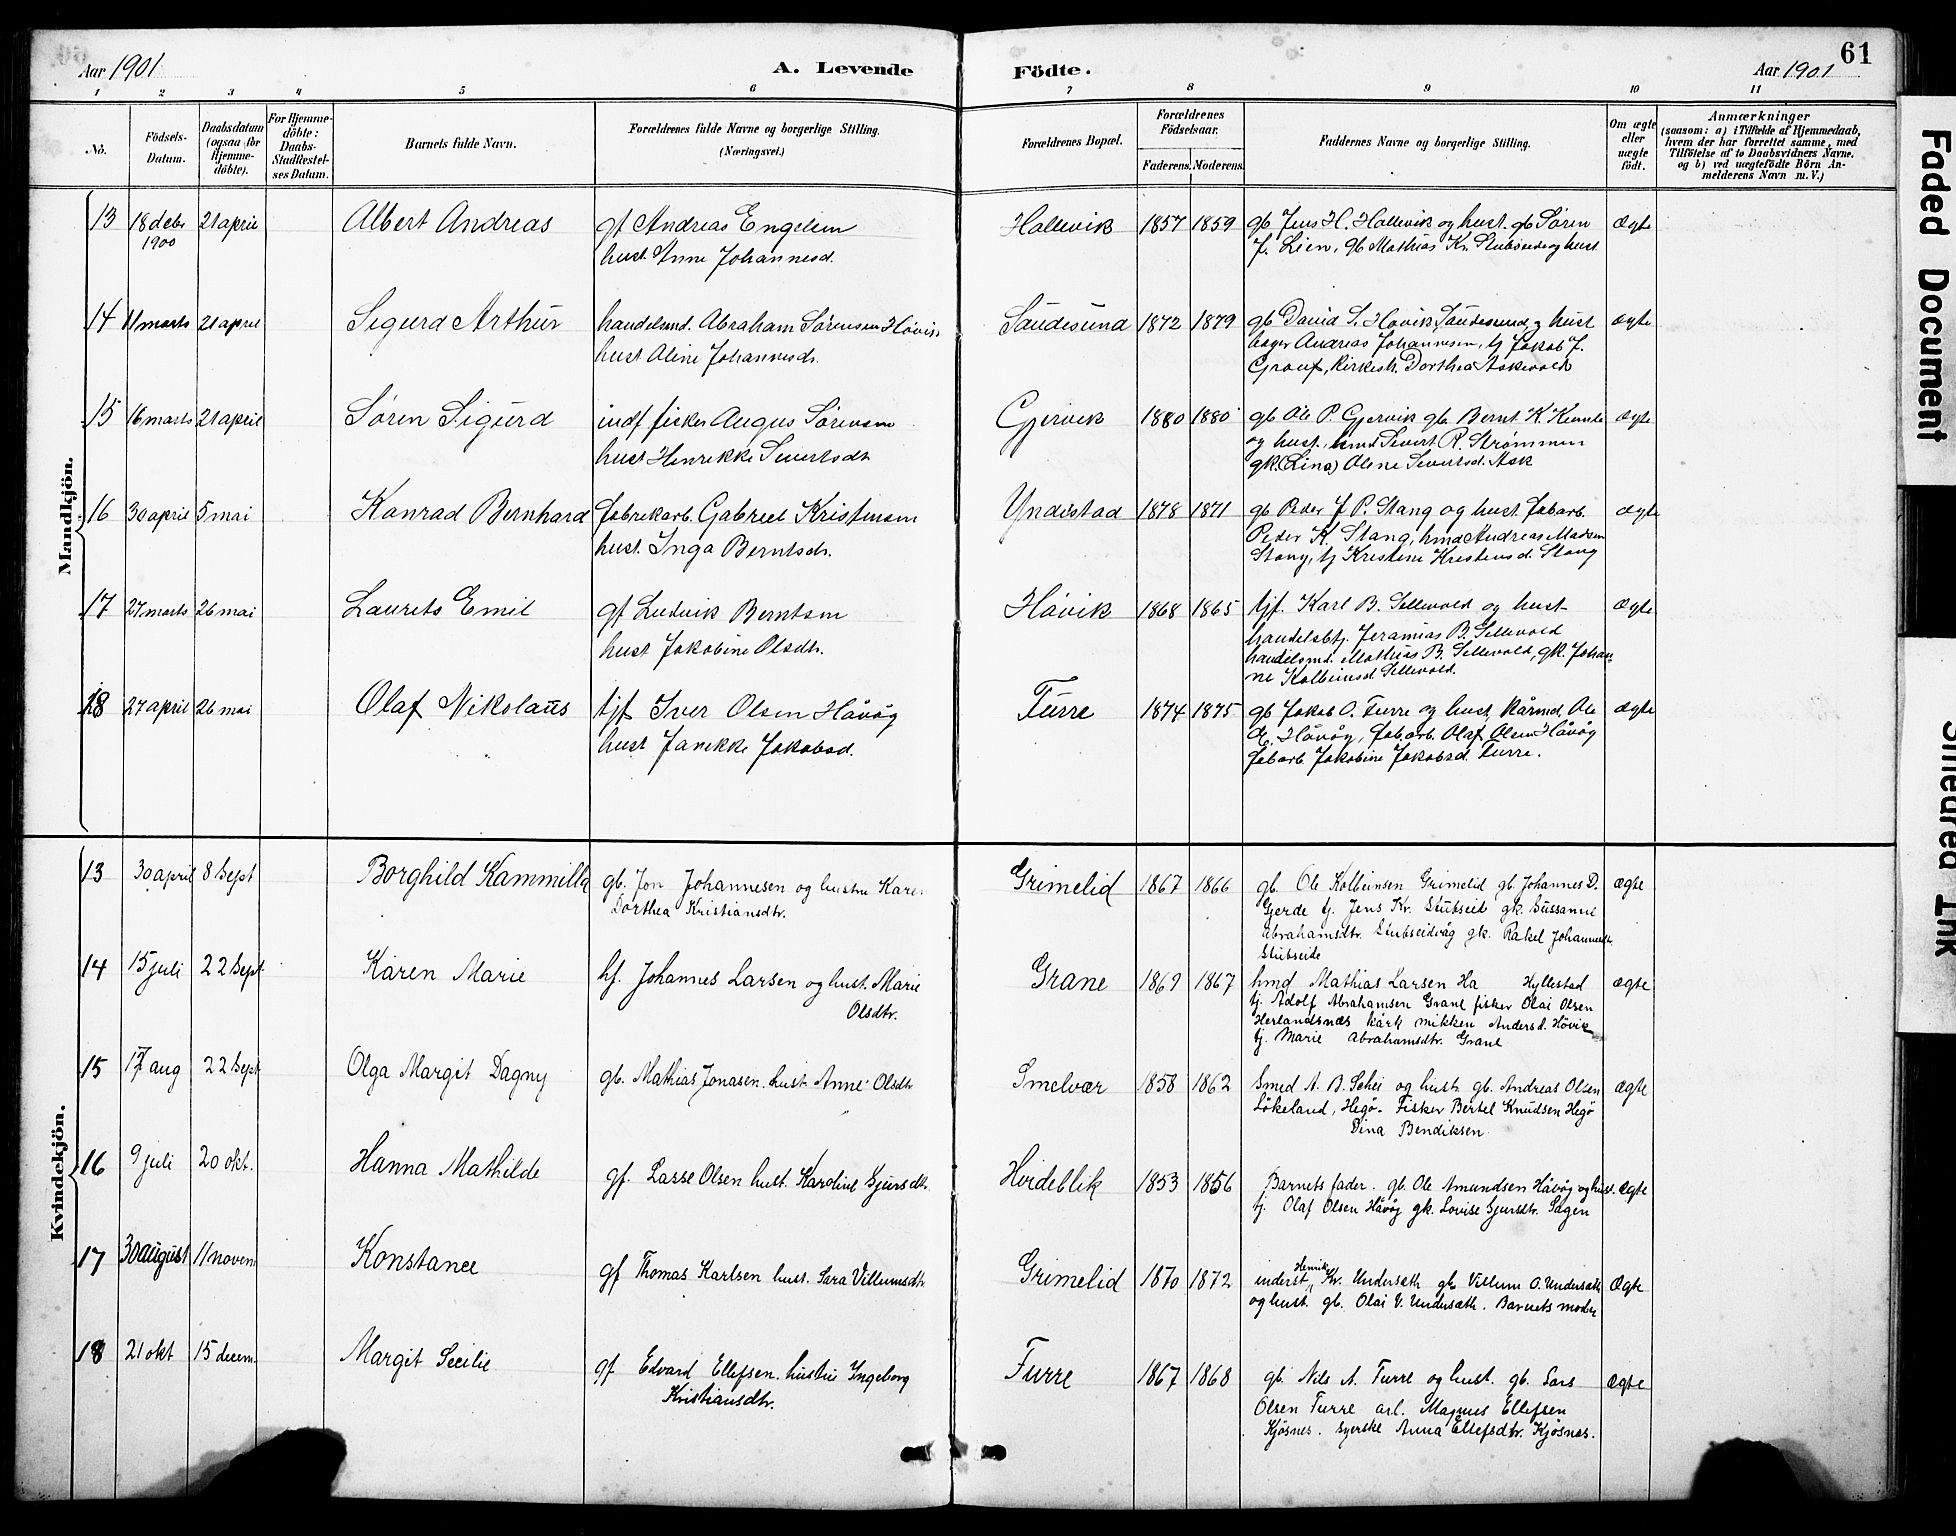 61
Aar 1901
A. Levende
Födte.
Aar 1901
1 2 3 4 5 6 7 8 9 10 11
No.
Födsels-Datum.
Daabsdatum (ogsaa for Hjemme-döbte).
For Hjemme-döbte: Daabs-Stadfæstel-ses Datum.
Barnets fulde Navn.
Forældrenes fulde Navne og borgerlige Stilling.
(Næringsvei.)
Forældrenes Bopæl.
Forældrenes Födselsaar.
Faderens. Moderens.
Faddernes Navne og borgerlige Stilling.
Om ægte eller uægte födt.
Anmærkninger
(saasom: a) i Tilfælde af Hjemmedaab, hvem der har forrettet samme, med Tilföielse af to Daabsvidners Navne, og b) ved uægtefödte Börn Anmelderens Navn m. V.)
Mandkjön.
13 18 debr 1900 21 april Albert Andreas gf Andreas Engelsen
hust. Anne Johannesd.
Hallevik 1857 1859 gb Jens H. Hallevik og hust. gb Søren
J. Lien, gb Mathias Kr. Stubseide og hust
Ægte
14 11 marts 21 april Sigurd Arthur handelsmd. Abraham Sørensen Håvik
hust Aline Johannesdr.
Saudesund 1872 1879 gb David S. Håvik, Saudesund, og hust
bager Andreas Johannesen, tj Jakob J.
Dorthea Askevold
ægte
15 16 marts 21 april Søren Sigurd indf fisker August Sørensen
hust Henrikke Sivertsdr
Gjervik 1880 1880 gb Ole P. Gjervik gb. Bernt K.
og hust, hmd Sivert R. Strømmen
gk. (Lina) Oline Sivertsd. Ask
Ægte
16 30 april 5 mai Konrad Bernhard fabrekarb. Gabriel Kristensen
hust. Inga Berntsdr.
Yndestad 1878 1871 gb Peder J P. Stang og hust fabarb.
Peder K. Stang, hmd Andreas Madsen
Stang, tj Kristine Kristensd. Stang
Ægte
17 27 marts 26 mai Laurits Emil gf Ludvik Berntsen
hust Jakobine Olsdtr.
Håvik 1868 1865 tjf. Karl B. Sellevold og hust
handelsbtj. Jeramias B. Sellevold
handelsmd. Mathias B. Sellevold, gk. Johan-
ne Kolbeinsd Sellevold.
Ægte
18 27 april 26 mai Olaf Nikolaus tjf Iver Olsen Håvåg
hust Janikke Jakobsd.
Furre 1874 1875 gb Jakob O. Furre og hust, kårmd. Ole
A. Håvåg, fabarb. Olaf Olsen Håvåg
fabarb. Jakobine Jakobsd. Furre.
Ægte
Kvindekjön.
13 30 april 8 Sept Borghild Kammilla gb. Jon Johannesen og hustru Kare
Dorthea Kristiansdtr.
Grimelid 1867 1866 gb. Ole Kolbeinsen Grimelid gb. Johannes D.
Gjerde tj. Jens Kr. Stubseid gk. Sussanne
Abrahamsdtr. Stubseidvåg gk. Rakel Johannesdtr.
Stubseide
Ægte
14 15 juli 22 Sept. Karen Marie hf. Johannes Larsen og hust. Marie
Olsdtr.
Grane 1869 1867 hmd Mathias Larsen Ha Hyllestad
tj. Adolf Abrahamsen Grane fisker Olai Olsen
Herlandsnæs kårk mikken Anders d. Håvik
tj. Marie Abrahamsdtr. Grane
Ægte
15 17 aug 22 Sept Olga Margit Dagny gb. Mathias Jonasen. hust. Anne Olsdtr
Smelvær 1858 1862 Smed A. B. Schei og hustr. gb. Andreas Olsen
Løkeland, Hegø. Fisker Bertel Knudsen Hegø
Dina Bendiksen.
Ægte
16 9 juli 20 okt. Hanna Mathilde gf. Lasse Olsen hust. Karoline Gjursdtr.
Hordeblik 1853 1856 Barnets fader. gb. Ole Amundsen Håvåg og hust.
tj. Olaf Olsen Håvåg gk. Lovise Gjursdtr. Sagen
Ægte
17 30 august 11 novem Konstance gf Thomas Karlsen hust. Sara Villumsdtr.
Grimelid 1870 1872 inderst Henrik Kr. Undersæth gb Villum O. Undersæth
og hust. gb. Olai V. Undersæth. Barnets moder
Ægte
18 21 okt 15 decem. Margit Secilie gf Edvard Ellefsen. hustru Ingeborg
Kristiansdtr.
Furre 1867 1868 gb. Nils A. Furre og hust. gb. Lars
Olsen Furre arb. Magnus Ellefsen
Kjøsnes. syerske Anna Ellefsdtr. Kjøsnes.
Ægte
Faded Document
Smeared Ink